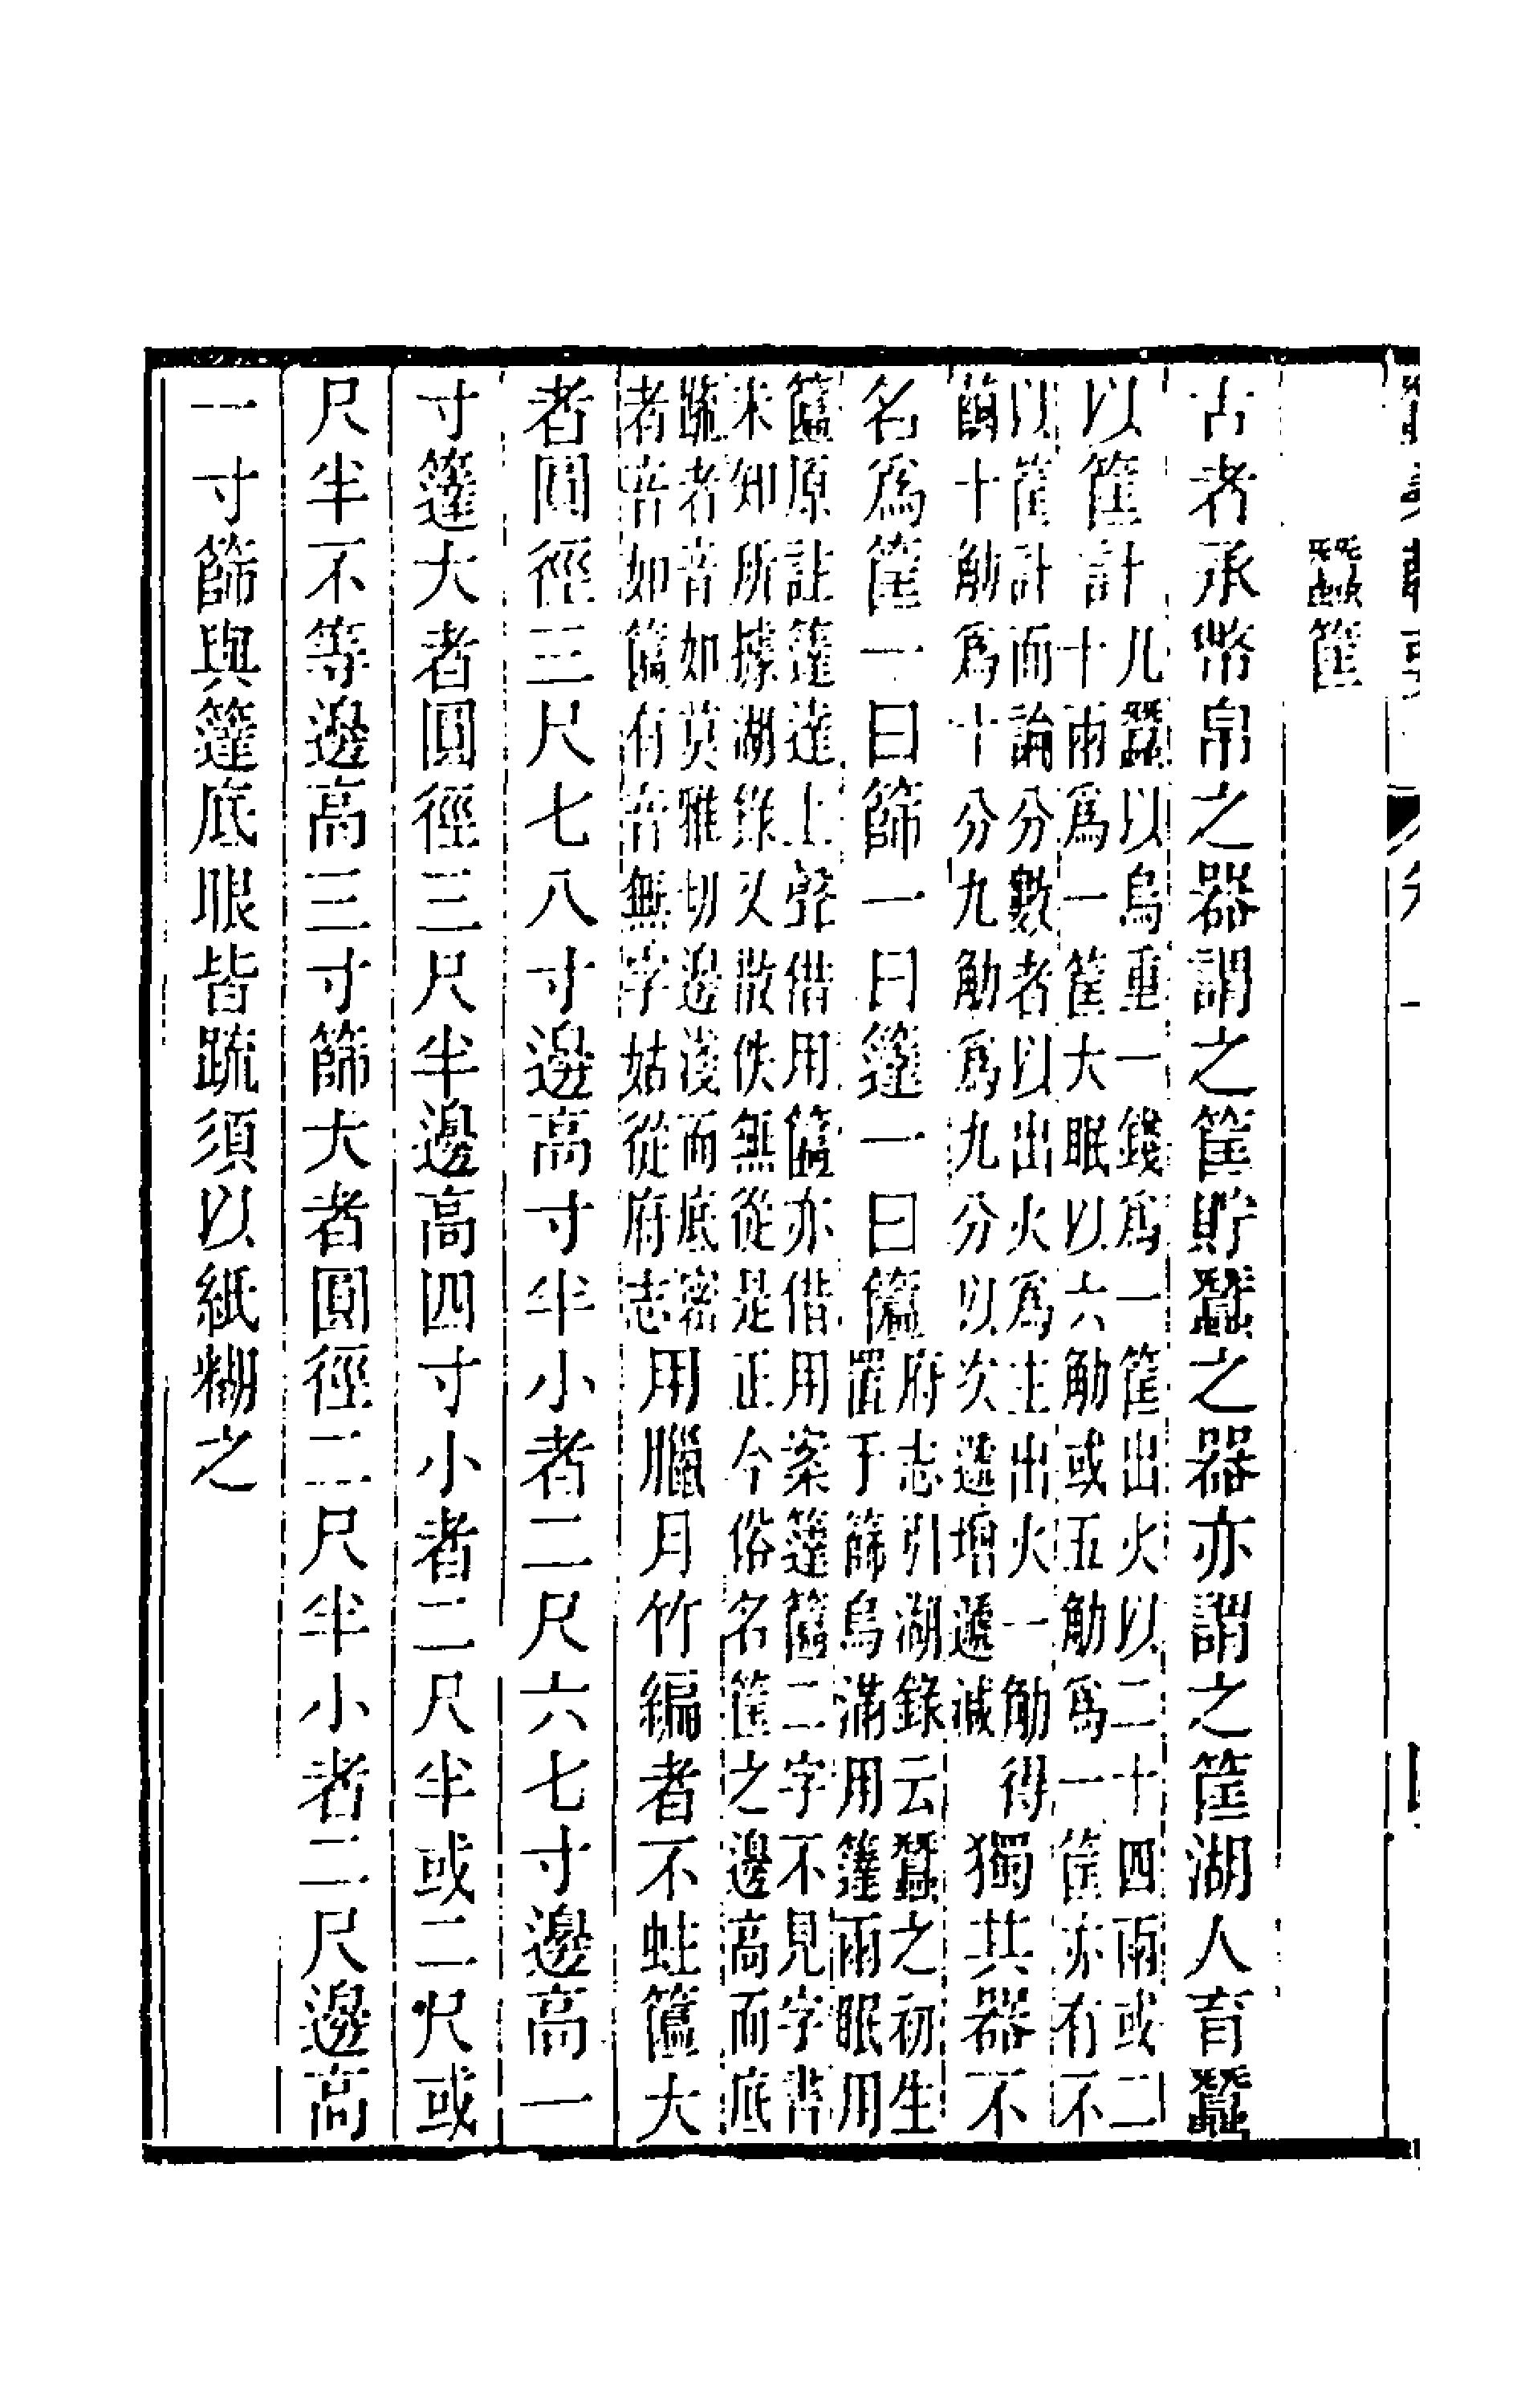 蠶筐
古者承幣帛之器謂之筐貯蠶之器亦謂之筐湖人育蠶
以筐計
凡蠶以烏重一錢爲一筐出火以二十四兩或二
十兩爲一筐大眠以六觔或五觔爲一筐亦有不
以筐計而論分數者以出火爲主出火一觔得
繭十觔爲十分九觔爲九分以次遞增遞減
獨其器不
名爲筐一曰篩一曰一曰
府志引湖錄云蠶之初生
置于篩烏滿用兩眠用
原註達上聲借用亦借用案二字不見字書
未知所據湖錄久散佚無從是正今俗名筐之邊高而底
疏者音如莫雅切邊淺而底密
者音如有音無字姑從府志
用臘月竹編者不蛀大
者圓徑三尺七八寸邊高寸半小者二尺六七寸邊高一
寸大者圓徑三尺半邊高四寸小者二尺半或二尺或
尺半不等邊高三寸篩大者圓徑二尺半小者二尺邊高
一寸篩與底眼皆疏須以紙糊之